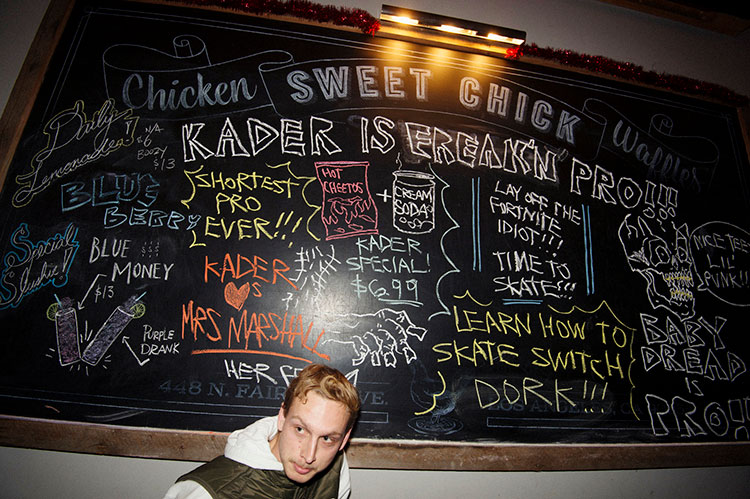 Chicken SWEET CHICK Waffles
KADER IS FREAK'N' PRO!!!
Daily
Lemonades!
N/A
6
BOOZY
$13
BLUE
BERRY
Special
Slushie!
BLUE
MONEY
$13
PURPLE
DRANK
SHORTEST
PRO
EVER!!!
HOT
CHEETOS
+
CREAM
SODA
KADER
SPECIAL!
$6.99
KADER
♥S
MRS MARSHALL
HER
LAY OFF THE
FORTNITE
IDIOT!!!
TIME TO
SKATE!!!
LEARN HOW TO
SKATE SWITCH
DORK!!!
NICE TEE
LIL'
PUNK!!
BABY
DREAD
IS
PRO!!
448 N. FAIR AVE.
LOS ANGELES, C